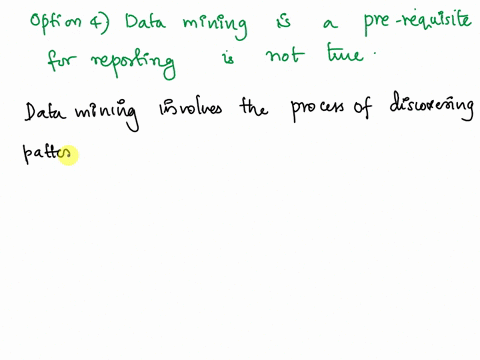 Option 4) Data mining is a pre-requisite
for reporting is not true.
Data mining involves the process of discovering
patte